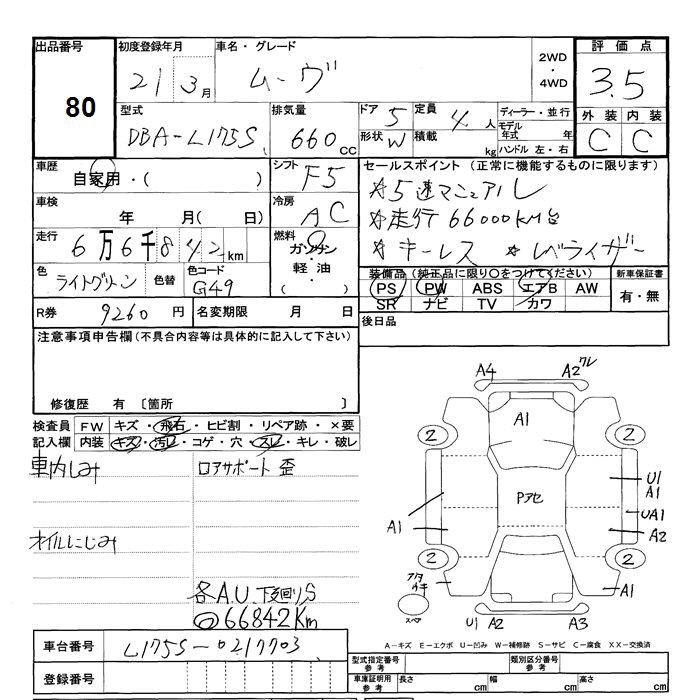 出品番号
80
初度登録年月
21 3月
車名・グレード
ムーヴ
2WD
・
4WD
評価点
3.5
外装 内装
C C
型式
DBA-L175S
排気量
660 CC
ドア 5
形状 W
定員 4人
積載 kg
ディーラー・並行
モデル年式 年
ハンドル 左・右
車歴
自家用・( )
シフト
F5
セールスポイント (正常に機能するものに限ります)
☆5速マニュアル
☆走行66000KM台
☆キーレス ☆レベライザー
車検
年 月( 日)
冷房
AC
走行
6万6千842km
燃料
ガソリン
・
軽油・
( )
色
ライトグリーン
色替
色コード
G49
装備品 (純正品に限り○をつけてください)
PS PW ABS エアB AW
SR ナビ TV カワ
新車保証書
有・無
R券 9260円
名変期限 月 日
後日品
注意事項申告欄(不具合内容等は具体的に記入して下さい)
修復歴 有 〔箇所 〕
検査員記入欄
FW キズ・飛石・ヒビ割・リペア跡・×要
内装 キズ・汚レ・コゲ・穴・スレ・キレ・破レ
車内しみ
ロアサポート 歪
オイルにじみ
各A.U.下廻りS
66842Km
A4 A2 クレ
A1
2 2
Pアセ
U1
A1
A1
UA1
A2
2 2
A1
スペア
U1 A2 A3
車台番号
L175S-0217703
登録番号
A-キズ E-エクボ U-凹み W-補修跡 S-サビ C-腐食 XX-交換済
型式指定番号
参考
類別区分番号
参考
車庫証明用
参考
長さ cm
幅 cm
高さ cm